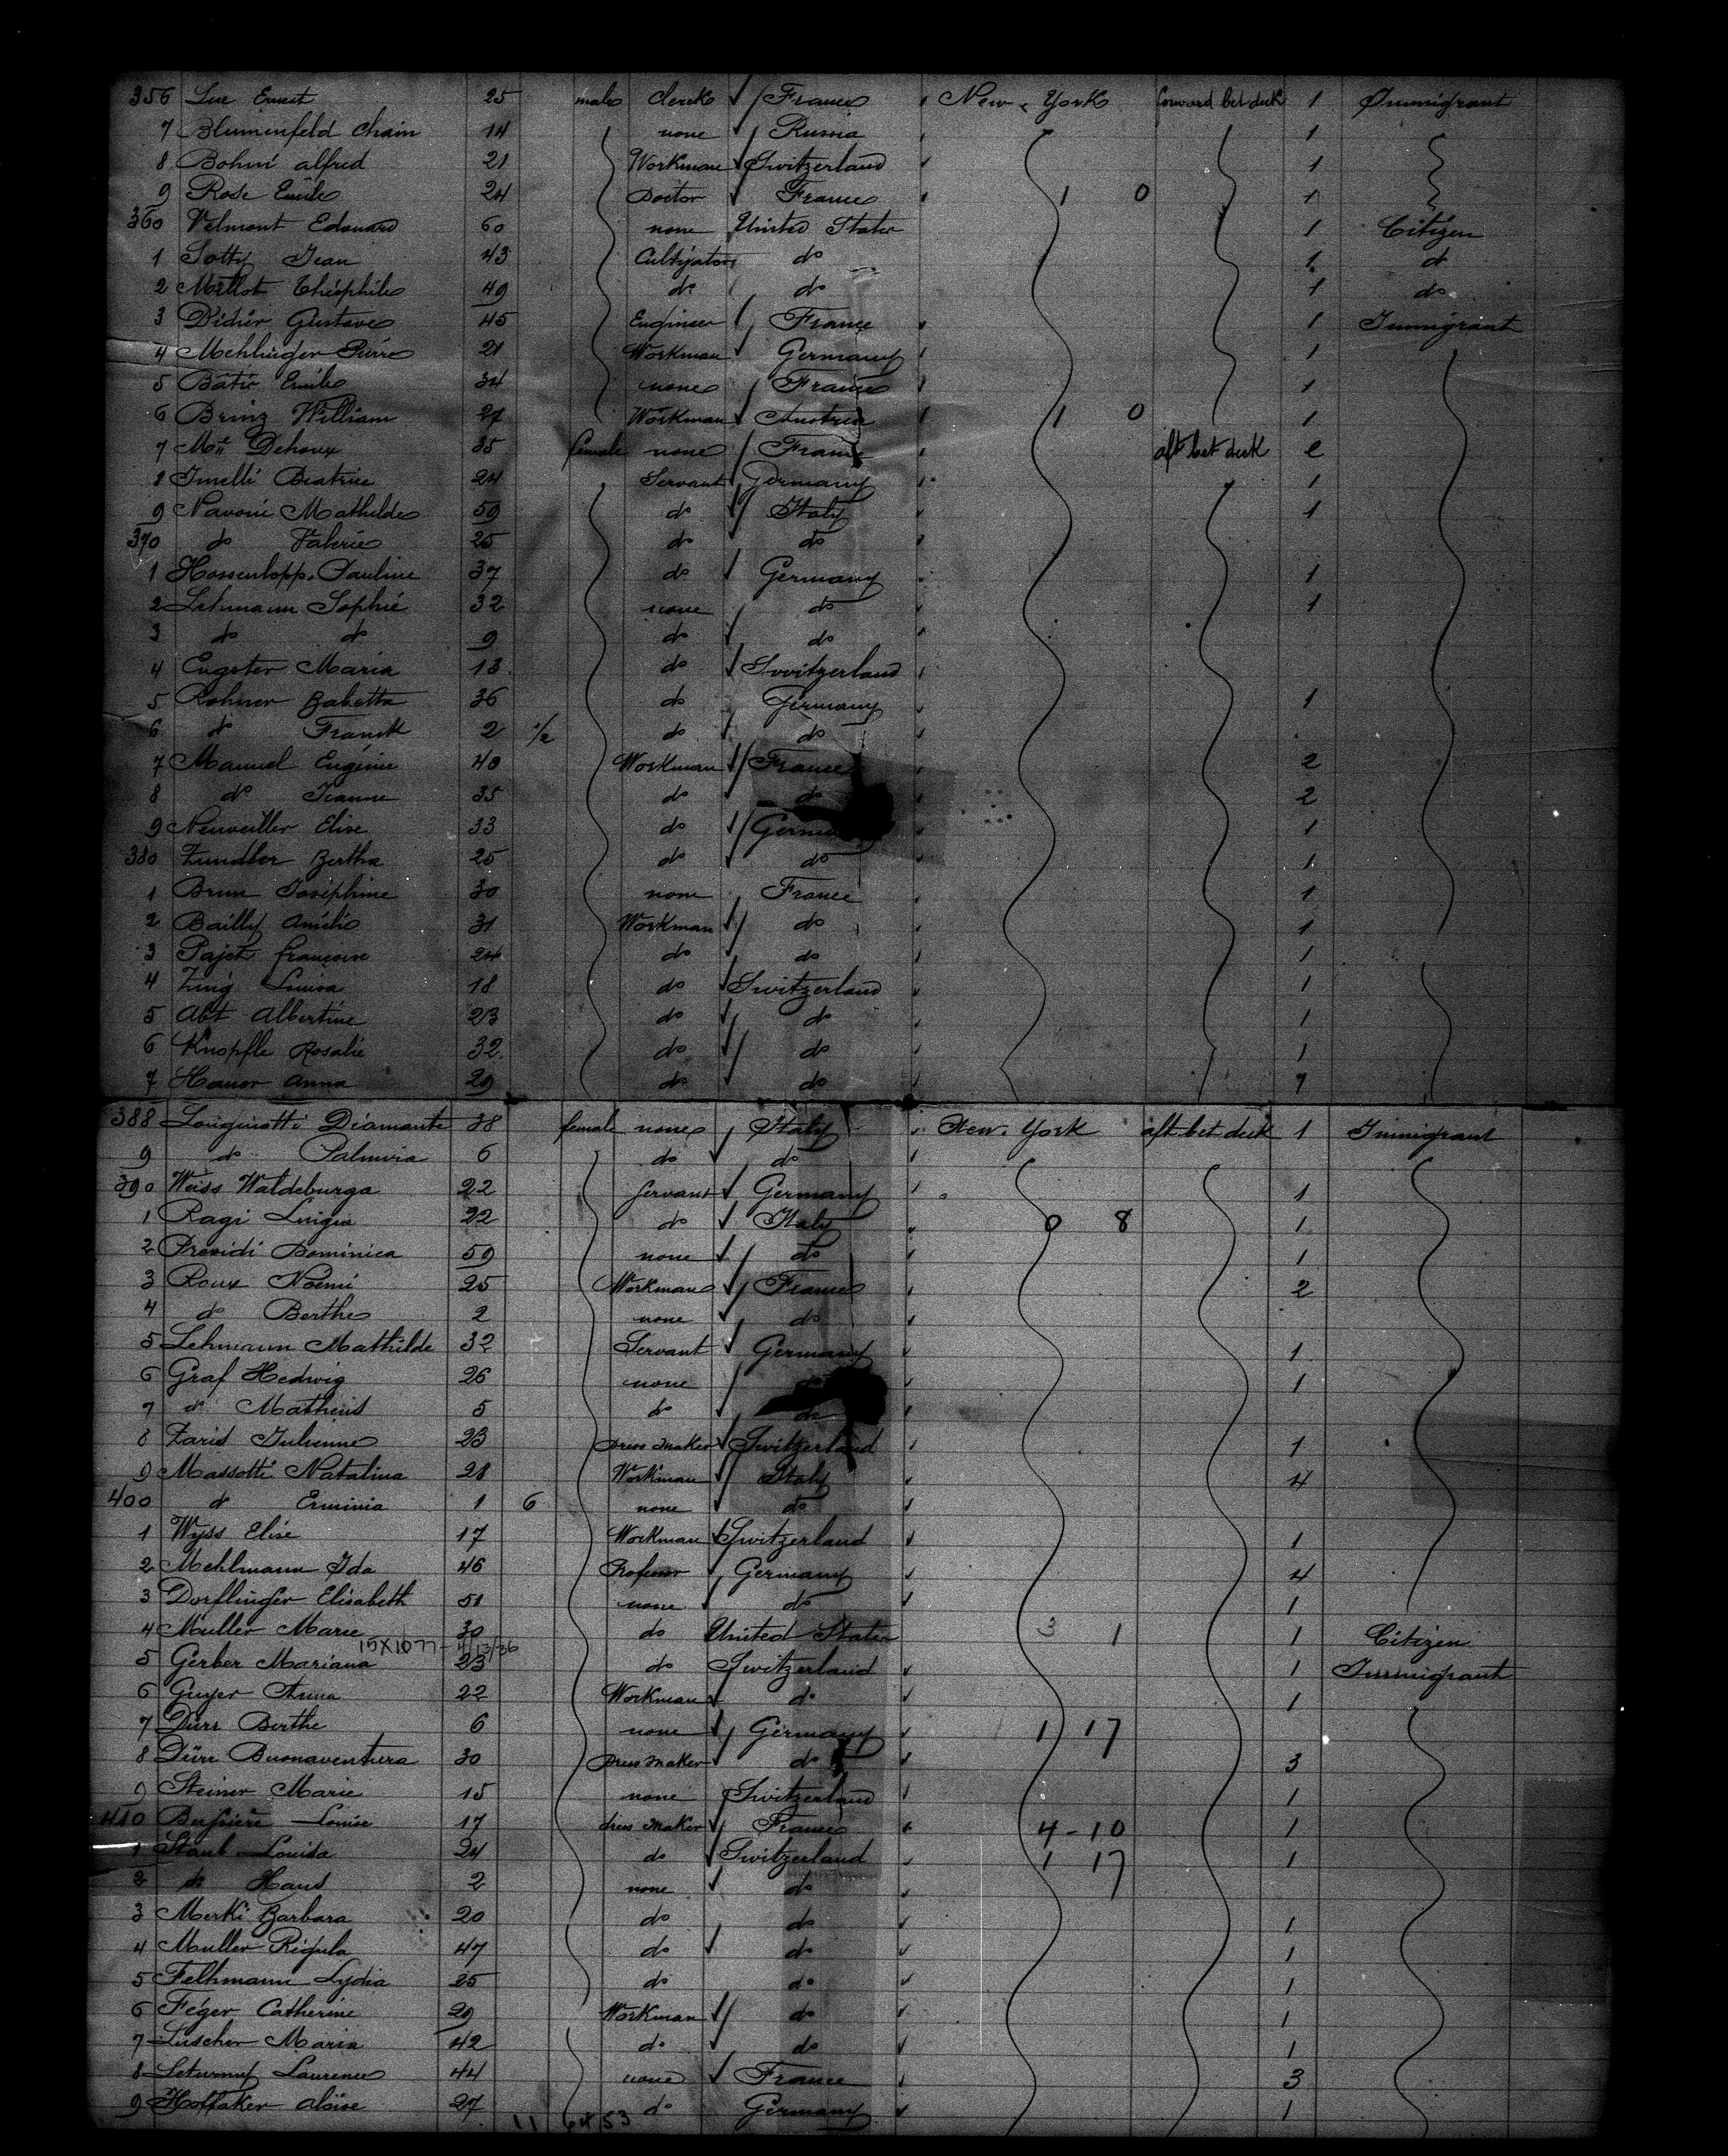 356 Luc Ernest 25 male clerk France New York forward bet deck 1 Immigrant
7 Blumenfeld Chain 14 none Russia 1
8 Bohni alfred 21 Workman Switzerland 1
9 Rose Emile 24 Doctor France 1 0 1
360 Velmont Edouard 60 none United States 1 Citizen
1 Sotty Jean 43 Cultivator do 1 do
2 Millot Théophile 49 do do 1 do
3 Didier Gustave 45 Engineer France 1 Immigrant
4 Mehlinger Pierre 21 Workman Germany 1
5 Batié Emile 34 none France 1
6 Brinz William 27 Workman Austria 1 0 1
7 Dehoux 35 female none France aft bet deck 2
8 Imelli Beatrice 24 Servant Germany 1
9 Navoni Mathilde 59 do Italy 1
370 do Valerie 25 do do
1 Hossenlopp Pauline 37 do Germany 1
2 Lehmann Sophie 32 none do 1
3 do do 9 do do
4 Eugster Maria 13 do Switzerland
5 Rohner Babetta 36 do Germany 1
6 do Franck 2 1/2 do do
7 Manuel Eugénie 40 Workman France 2
8 do Jeanne 35 do do 2
9 Neuweiller Elise 33 do 1
380 Zundler Bertha 25 do do 1
1 Brun Joséphine 30 none France 1
2 Bailly Amélie 31 Workman do 1
3 Pajet françoise 24 do do 1
4 Zing Louisa 18 do Switzerland 1
5 Abt Albertine 23 do do 1
6 Knopfle Rosalie 32 do do 1
7 Hauor anna 29 do do 1
388 Longinotti Diamante 38 female none Italy New York aft bet deck 1 Immigrant
9 do Palmira 6 do do
390 Weiss Waldeburga 22 servant Germany 1
1 Ragi Luigia 22 do Italy 0 8 1
2 Previdi Dominica 59 none do 1
3 Roux Noémi 25 Workman France 2
4 do Berthe 2 none do
5 Lehmann Mathilde 32 Servant Germany 1
6 Graf Hedwig 26 none do 1
7 do 5 do do
8 Zarid Julienne 23 Dress Maker Switzerland 1
9 Massotti Natalina 28 Workman Italy 4
400 do Erminia 1 6 none do
1 Wyss Elise 17 Workman Switzerland 1
2 Mehlmann Ida 46 Professor Germany 4
3 Dorflinger Elisabeth 51 none do 1
4 Muller Marie 30 do United States 3 1 1 Citizen
15X1077 - 4/13/36
5 Gerber Mariana 23 do Switzerland 1 Immigrant
6 Guyer Anna 22 Workman do 1
7 Dürr Berthe 6 none Germany 1 17
8 Dürr Buonaventura 30 Dress Maker do 3
9 Steiner Marie 15 none Switzerland 1
410 Bussière Louise 17 dress Maker France 4-10 1
1 Staub Louisa 24 do Switzerland 1 17 1
2 do Hans 2 none do
3 Merki Barbara 20 do do 1
4 Muller Regula 47 do do 1
5 Felhmann Lydia 25 do do 1
6 Féger Catherine 29 Workman do 1
7 Luscher Maria 42 do do 1
8 Laurence 44 none France 3
9 Hoffaker aloise 27 do Germany 1
11 6453